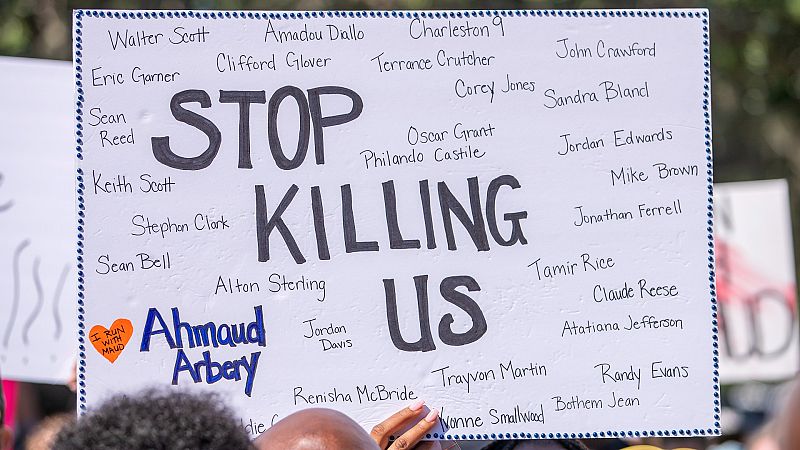 Walter Scott
Amadou Diallo
Charleston 9
Eric Garner
Clifford Glover
Terrance Crutcher
John Crawford
Corey Jones
Sandra Bland
Sean
Reed
STOP
Oscar Grant
Philando Castile
Jordan Edwards
Mike Brown
Keith Scott
KILLING
Stephon Clark
Jonathan Ferrell
Sean Bell
Alton Sterling
Tamir Rice
Claude Reese
US
I RUN
WITH
MAUD
Ahmaud
Arbery
Jordan
Davis
Atatiana Jefferson
Trayvon Martin
Randy Evans
Renisha McBride
Bothem Jean
Yvonne Smallwood